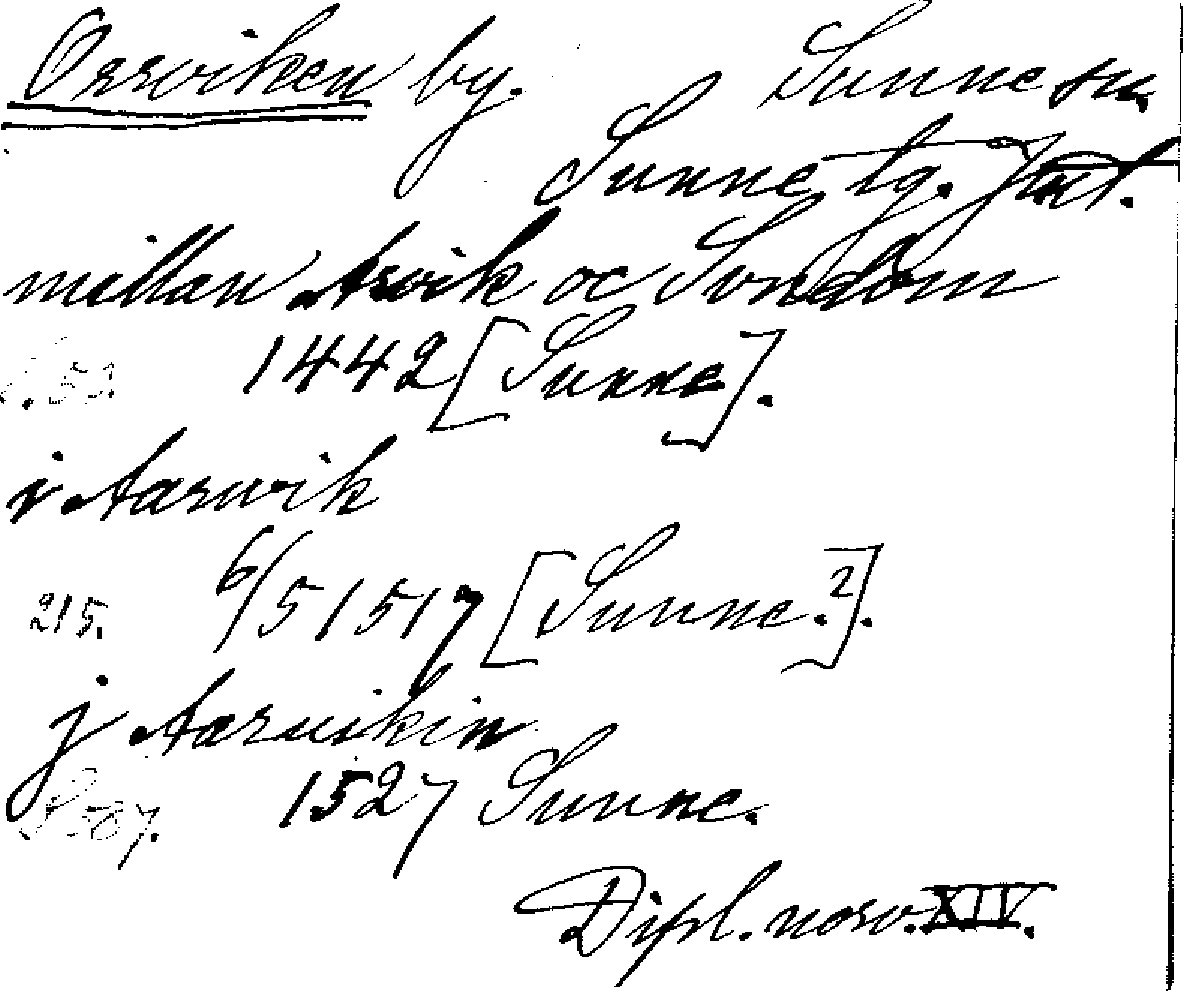 Orrviken by. Sunne sn.
Sunne tg. Jmt.
mellan Arvik oc Sondom
1442 [Sunne].
i Aarwik
215. 6/5 1517 [Sunne.2].
j Aarwikin
1527 Sunne.
Dipl. norv. XIV.